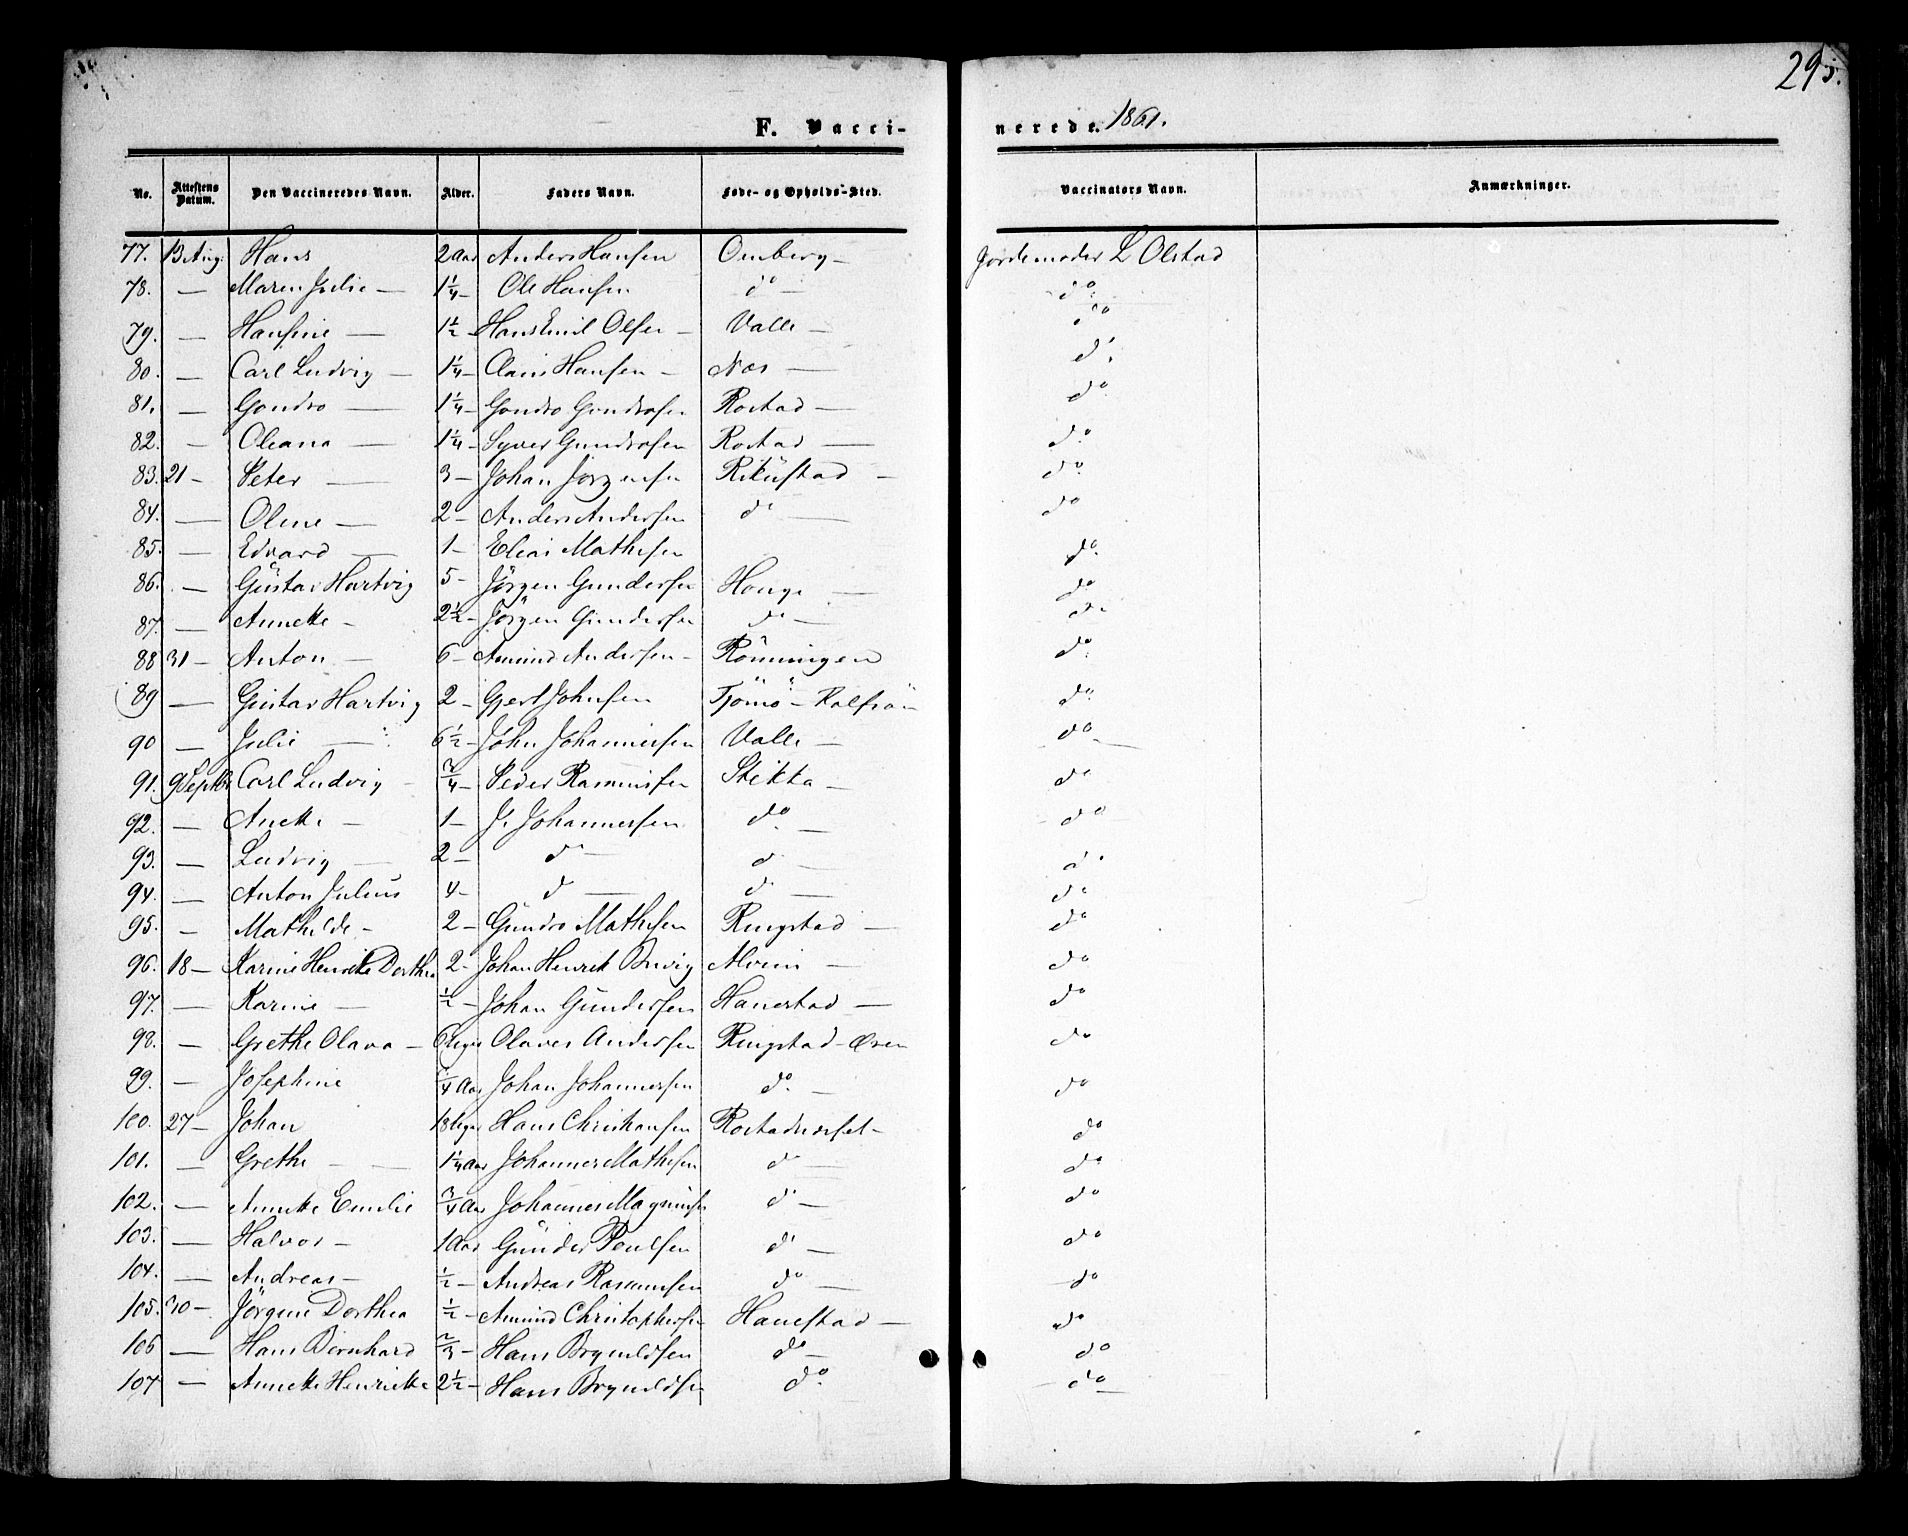 295.
F. Vacci-
nerede. 1861.
No. Attestens Datum. Den Vaccineredes Navn. Alder. Faders Navn. Føde- og Opholds-Sted. Vaccinators Navn. Anmærkninger.
77. 13 Aug. Hans 2 Aar Anders Hansen Omberg — Jordemoder L Olstad
78. — Maren Julie — 1 1/4 — Ole Hansen do — do
79. — Hansine — 1 1/2 — Hans Emil Olsen — Valle — do
80. — Carl Ludvig — 1 1/4 — Claus Hansen — Næs — do
81. — Gondro — 1 1/4 — Gondro Gondrosen Rostad — do
82. — Oleana — 1 1/4 — Syver Gundrosen Rostad — do
83. 21 — Peter — 3 — Johan Jörgensen — do
84. — Oline — 2 — Anders Andersen do — do
85. — Edvard — 1 — Elias Mathisen do
86. — Gustav Hartvig 5 — Jörgen Gundersen Hauge — do
87. — Annette — 2 1/2 — Jörgen Gundersen do — do
88 31 — Anton — 6 — Amund Andersen — Rönningen do
89 — Gustav Hartvig 2 — Gjert Johnsen Tjömö — do
90 — Julie — 6 1/2 — John Johannesen Valle — do
91. 9 Septbr Carl Ludvig — 3/4 — Peder Rasmussen Stikka — do
92. — Anette — 1 — J. Johannesen do — do
93. — Ludvig — 2 — do — do — do
94. — Anton Julius 4 — do — do — do
95. — Mathilde — 2 — Gundro Mathisen Ringstad — do
96. 18 — Karine Henrikke Dorthea 2 — Johan Henrik Brevig Alveim — do
97. — Karine — 1/2 — Johan Gundersen Hanestad — do
98. — Grethe Olava — 6 Uger Olaves Andersen Ringstad — Øren do
99. — Josephine 1/4 Aar Johan Johannesen do — do
100. 27 — Johan 13 Uger Hans Christiansen — do
101. — Grethe — 1 1/4 Aar Johannes Mathisen do — do
102. — Annette Emilie 3/4 Aar Johannes Magnusen do — do
103. — Halvor — 1 Aar Gunder Poulsen do — do
104. — Andreas — 1/2 — Andreas Rasmussen do — do
105. 30 — Jörgine Dorthea 1/2 — Amund Christophersen Hanestad — do
106 — Hans Bernhard 2/3 — Hans Brynildsen do — do
107 — Annette Henriette 2 1/2 — Hans Brynildsen do do